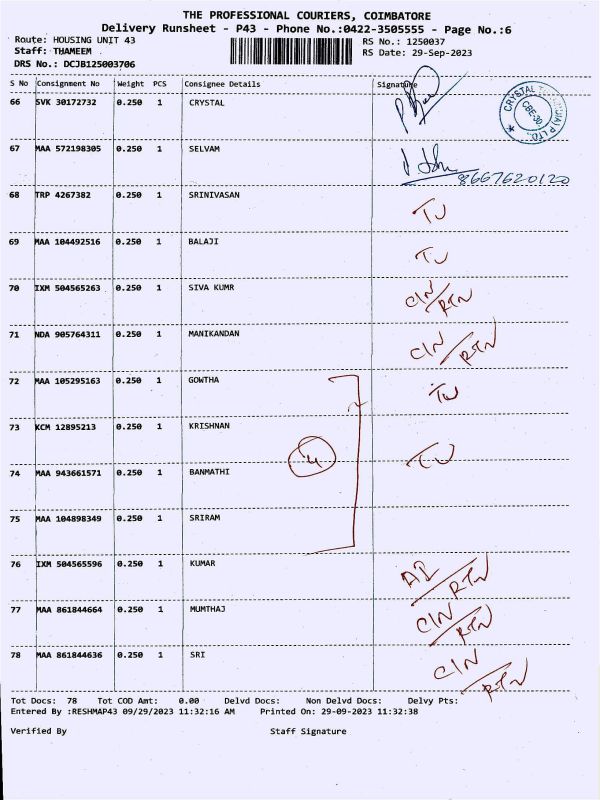 THE PROFESSIONAL COURIERS, COIMBATORE
Delivery Runsheet - P43 - Phone No.:0422-3505555 - Page No.:6
Route: HOUSING UNIT 43 RS No.: 1250037
Staff: THAMEEM RS Date: 29-Sep-2023
DRS No.: DCJB125003706
S No Consignment No Weight PCS Consignee Details Signature
66 SVK 30172732 0.250 1 CRYSTAL
67 MAA 572198305 0.250 1 SELVAM 8667620120
68 TRP 4267382 0.250 1 SRINIVASAN TU
69 MAA 104492516 0.250 1 BALAJI TU
70 IXM 504565263 0.250 1 SIVA KUMR CIN/RTN
71 NDA 905764311 0.250 1 MANIKANDAN CIN/RTN
72 MAA 105295163 0.250 1 GOWTHA TU
73 KCM 12895213 0.250 1 KRISHNAN TU
74 MAA 943661571 0.250 1 BANMATHI
75 MAA 104898349 0.250 1 SRIRAM
76 IXM 504565596 0.250 1 KUMAR AD/RTN
77 MAA 861844664 0.250 1 MUMTHAJ CIN/RTN
78 MAA 861844636 0.250 1 SRI CIN/RTN
Tot Docs: 78 Tot COD Amt: 0.00 Delvd Docs: Non Delvd Docs: Delvy Pts:
Entered By :RESHMAP43 09/29/2023 11:32:16 AM Printed On: 29-09-2023 11:32:38
Verified By Staff Signature